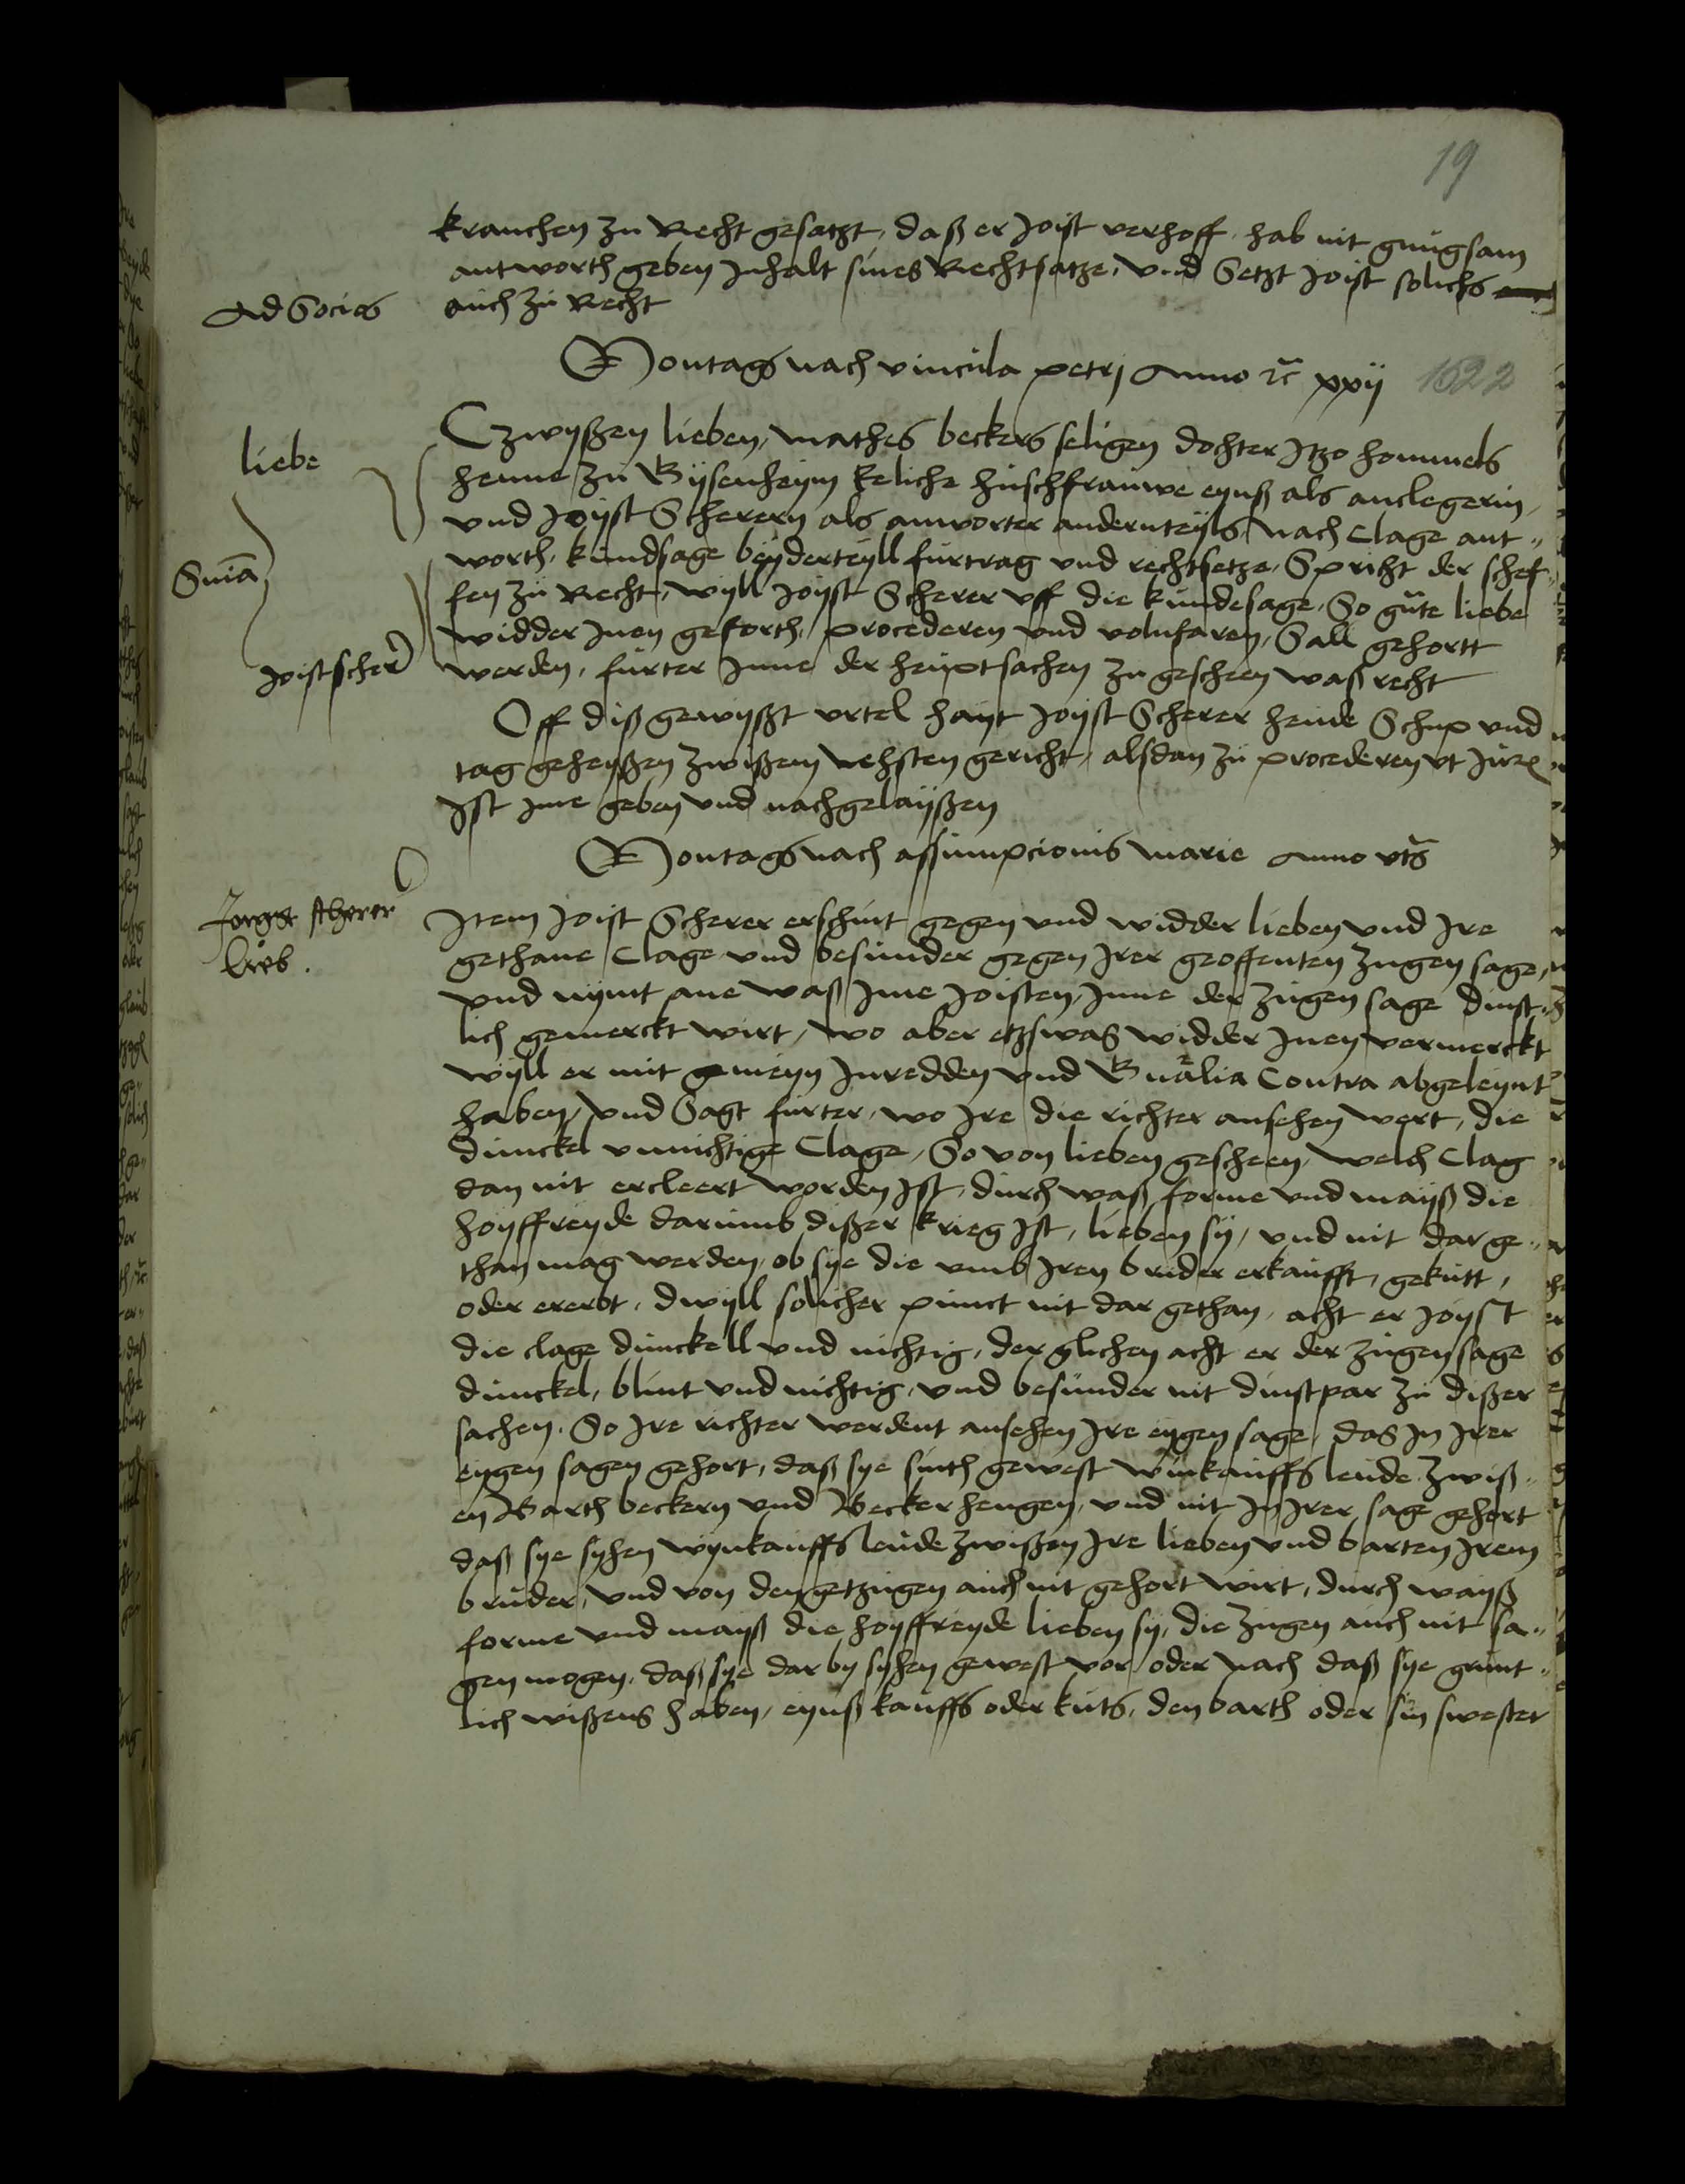 19
krauchen zu Recht gesatzt, daß er Joist verhoff hab nit gnugsam
antworth geben Inhalt sines Rechtsatze, und Setzt Joist solichs
Ad Socios
auch zu Recht
Montags nach vincula petrj Anno rc xxij 1522
Czwyßen lieben, Mathes beckers seligen dochter Itzo hommels
liebe
henne zu Bysenheym Eeliche huschfrauwe eynß als anclegerin,
und Joyst Scherern als anworter anderteyls, Nach Clage ant„
worth, kundsage beyderteyll furtrag und rechtsetze, Spricht der schef„
Snia
fen zu Recht, wyll Joyst Scherer uff die kundesage, So gute liebe
widder Inen geforth, procederen und volnfaren, Sall gehortt
Joist scherer
werden, furter Inne der heuptsachen zu gescheen waß recht
Off diß gewyßt urtel hayt Joyst Scherer heude Schup und
tag geheyßen zwißem nehsten gericht, alsdan zu procederen ut Jur
Ist ime geben und nachgelayßen
Montags nach assumpcionis marie Anno uts
Jorge scherer
lieb.
Item Joist Scherer erschint gegen und widder lieben und Ire
gethane Clage und besunder gegen Irer geoffenten zugen sage,
und nympt ane waß Ime Joisten, Inne der zugen sage dinst„
lich gemerckt wirt, wo aber etzwas widder Inen vermerckt
wyll er mit gmeyn Inredden und Gnalia Contra abgeleynt
haben, und Sagt furter, wo Ire die richter ansehen wert, die
dunckel unnichtige Clage, So von lieben gescheen, welch Clag
dan nit ercleert worden Ist, durch waß forme und mayß die
hoyffreyde darumb dißer krieg Ist, lieben sy, und nit dar ge„
than mag werden, ob sye die umb Iren bruder erkaufft, gekutt,
oder ererbt, dwyll solicher punct nit dar gethan, acht er Joyst
die clage dunckell und nichtig, der glichen acht er der zugen sage
dunckel, blint und nichtig, und besunder nit dinstpar zu dißer
sachen. So Ire richter werdent ansehen Ire eygen sage, das In Irer
eygen sagen gehort, daß sye sinth gewest wynkauffs leude zwiß„
en Barth beckern und Becker hengen, und nit In Irer sage gehort
daß sye syhen wynkauffs leude zwißen Ire lieben und barten Irem
bruder, und von den getzugen auch nit gehort wirt, durch wayß
forme und mayß die hoyffreyde lieben sy, die zugen auch nit sa„
gen mogen, daß sye dar by syhen gewest vor oder nach daß sye grunt„
lich wißens haben, eynß kauffs oder kuts, den barth oder sin swester